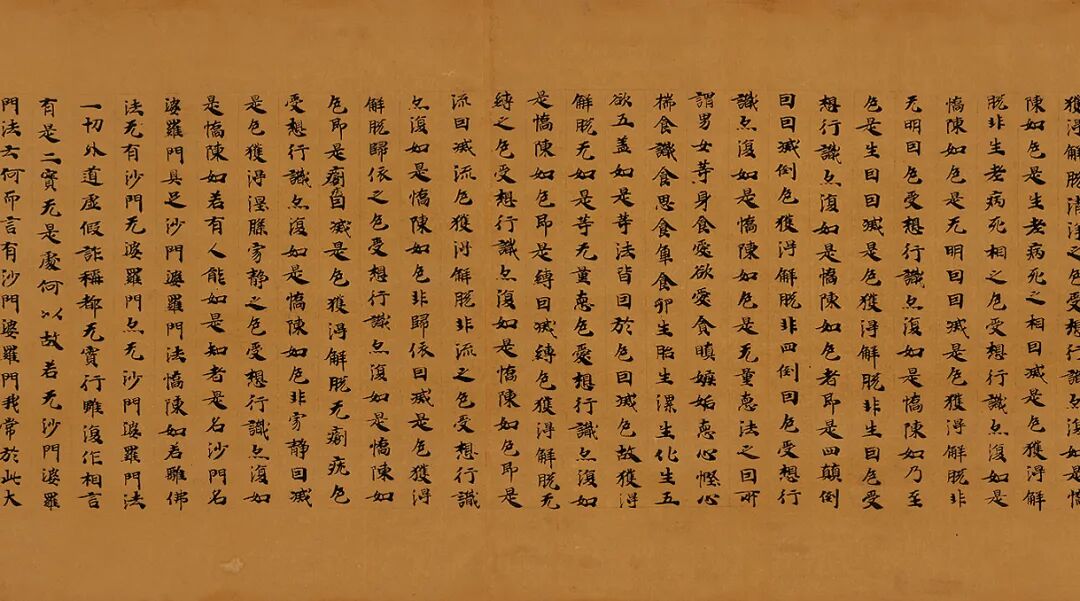 獲得解脫清淨之色受想行識亦復如是憍
陳如色是生老病死之相因滅是色獲得解
脫非生老病死相之色受想行識亦復如是
憍陳如色是无明因因滅是色獲得解脫非
无明因色受想行識亦復如是憍陳如乃至
色是生因因滅是色獲得解脫非生因色受
想行識亦復如是憍陳如色者即是四顛倒
因因滅倒色獲得解脫非四倒因色受想行
識亦復如是憍陳如色是无量惡法之因所
謂男女等身食愛欲愛食瞋嫉妬惡心慳心
揣食識食思食觸食卵生胎生濕生化生五
欲五蓋如是等法皆因於色因滅色故獲得
解脫无如是等无量惡色受想行識亦復如
是憍陳如色即是縛因滅縛色獲得解脫无
縛之色受想行識亦復如是憍陳如色即是
流因滅流色獲得解脫非流之色受想行識
亦復如是憍陳如色非歸依因滅是色獲得
解脫歸依之色受想行識亦復如是憍陳如
色即是瘡因滅是色獲得解脫无瘡疣色
受想行識亦復如是憍陳如色非寂靜因滅
是色獲得涅槃寂靜之色受想行識亦復如
是憍陳如若有人能如是知者是名沙門名
婆羅門具足沙門婆羅門法憍陳如若離佛
法无有沙門无婆羅門亦无沙門婆羅門法
一切外道虛假詐稱都无實行雖復作相言
有是二實无是處何以故若无沙門婆羅
門法云何而言有沙門婆羅門我常於此大